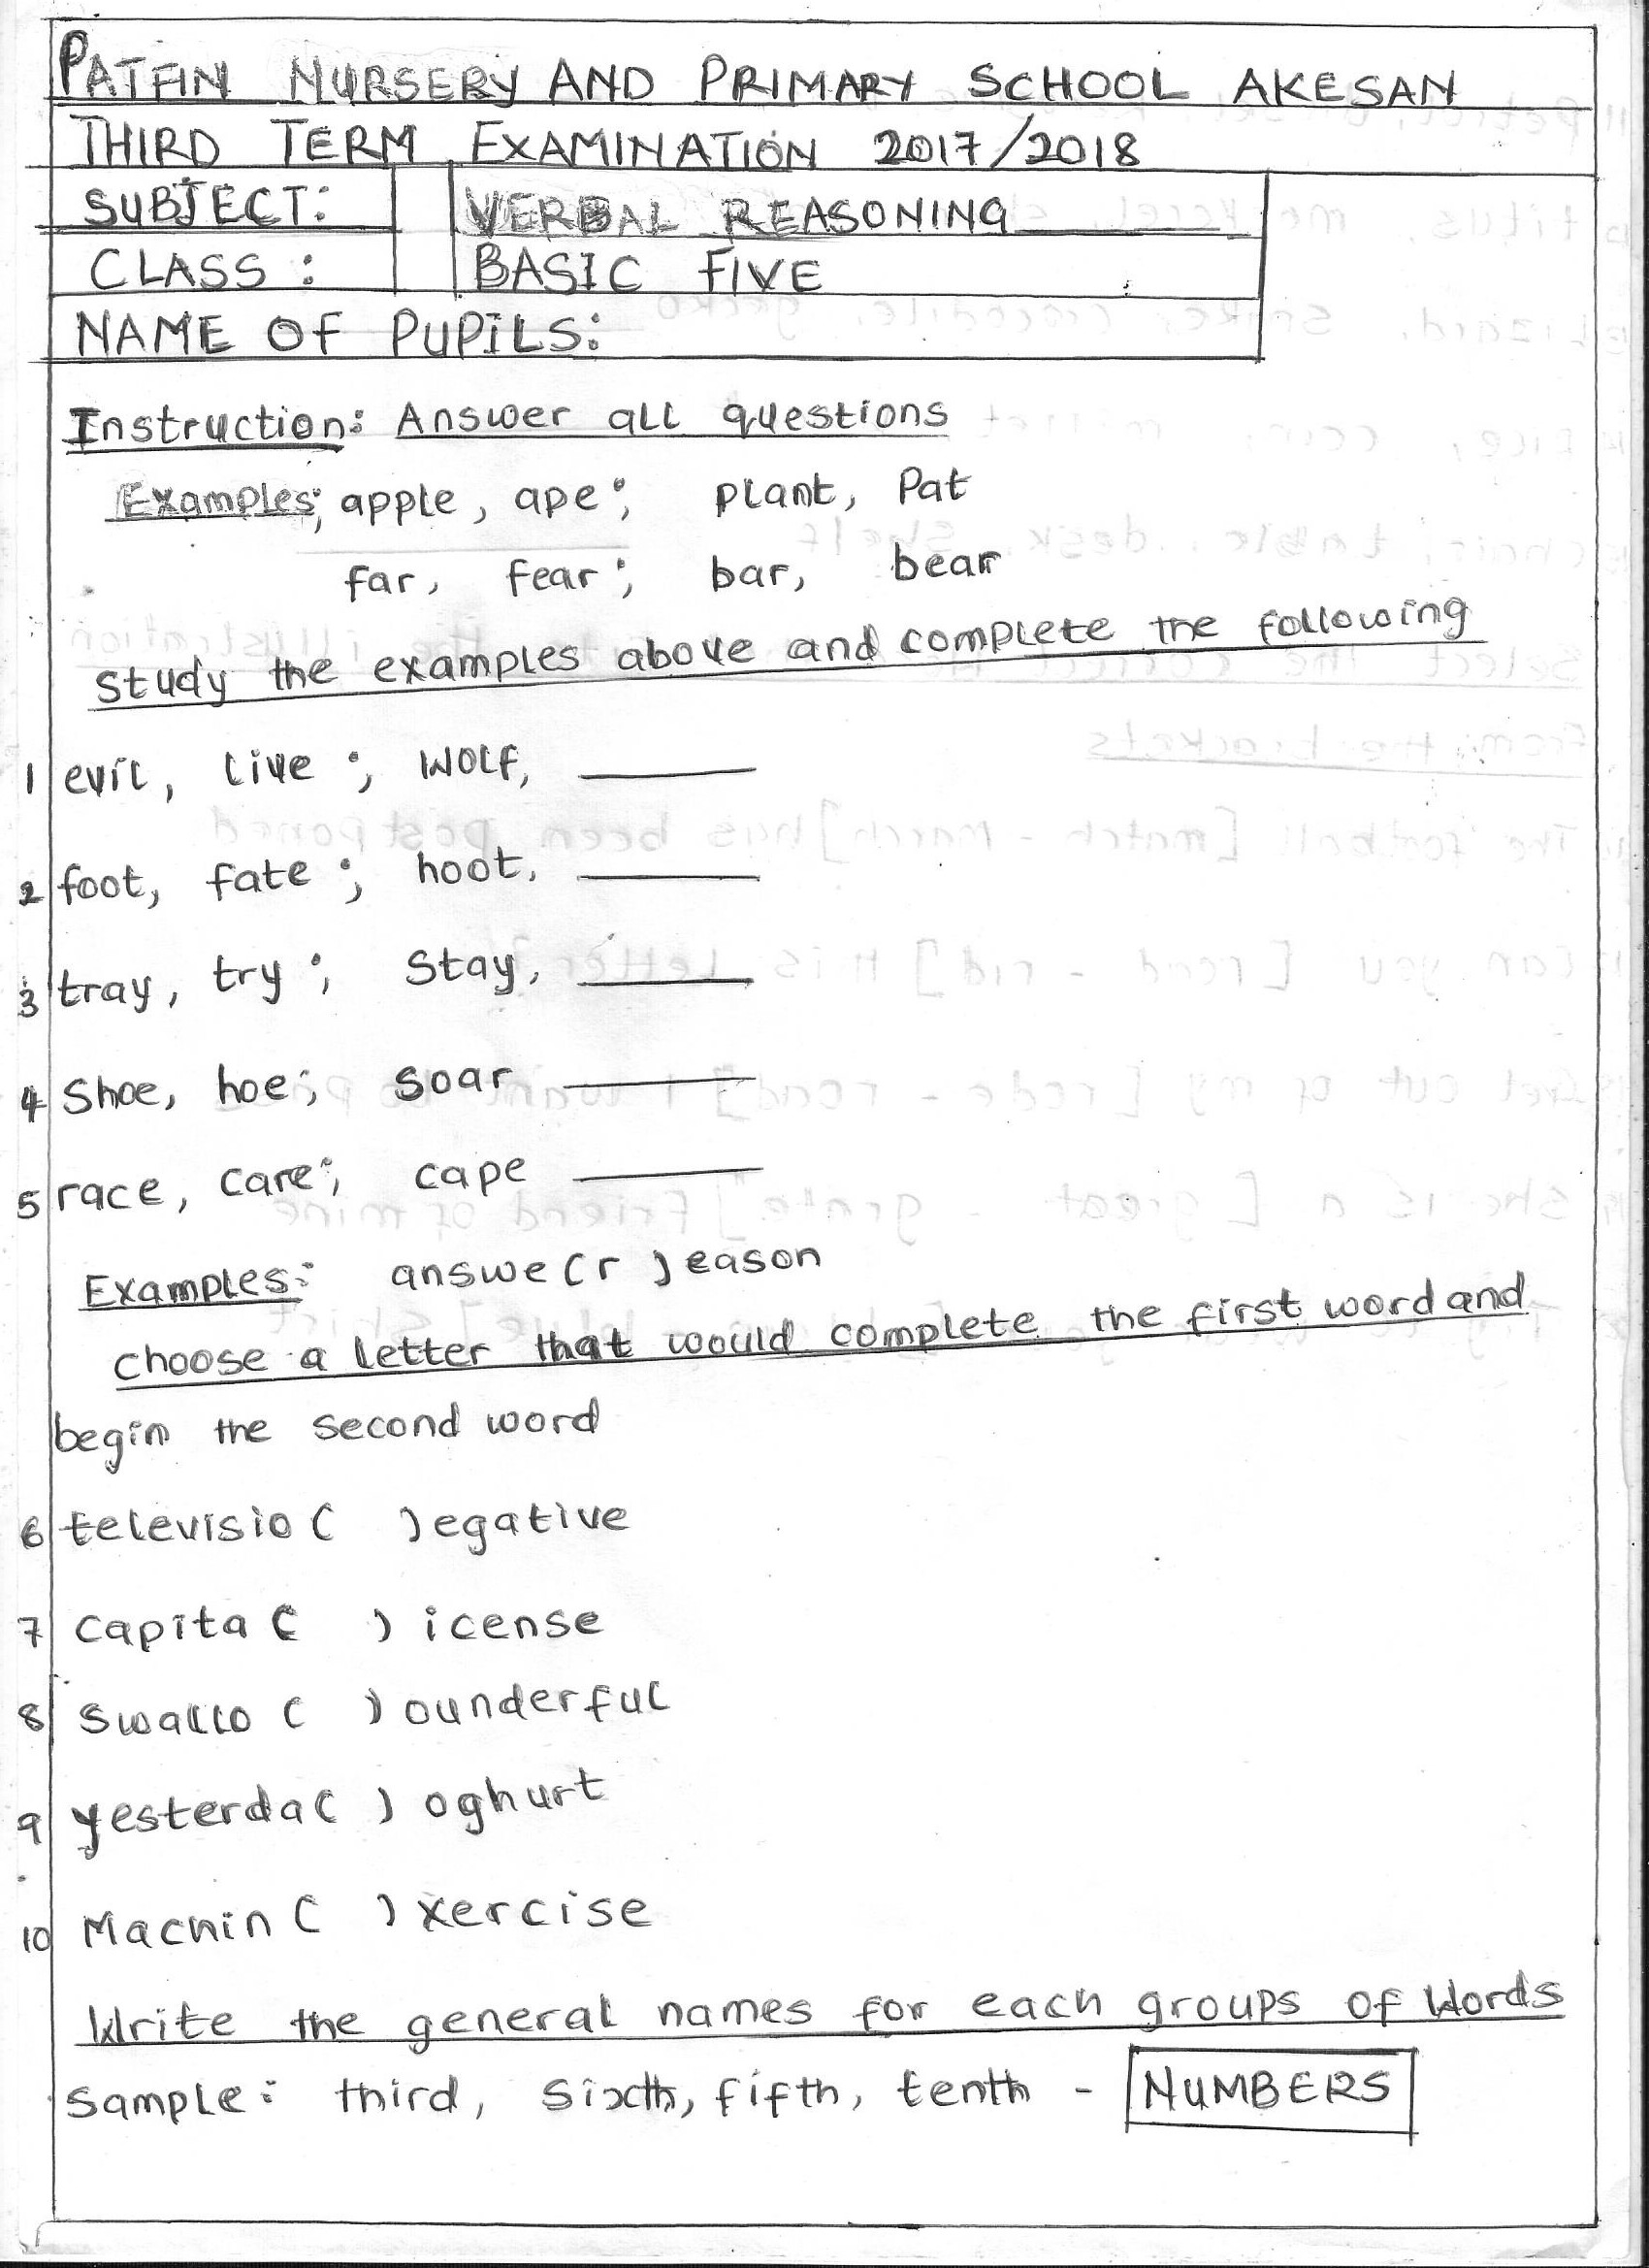 PATFIN NURSERY AND PRIMARY SCHOOL AKESAN
THIRD TERM EXAMINATION 2017/2018
SUBJECT: VERBAL REASONING
CLASS: BASIC FIVE
NAME OF PUPILS:
Instruction: Answer all questions
Examples; apple, ape; plant, Pat
far, fear; bar, bear
study the examples above and complete the following
1 evil, live; Wolf, ______
2 foot, fate; hoot, ______
3 tray, try; Stay, ______
4 Shoe, hoe; soar ______
5 race, care; cape ______
Examples: answe(r)eason
choose a letter that would complete the first word and
begin the second word
6 televisio( )egative
7 capita( )icense
8 swallo( )ounderful
9 yesterda( )oghurt
10 Machin( )xercise
Write the general names for each groups of Words
Sample: third, sixth, fifth, tenth - NUMBERS